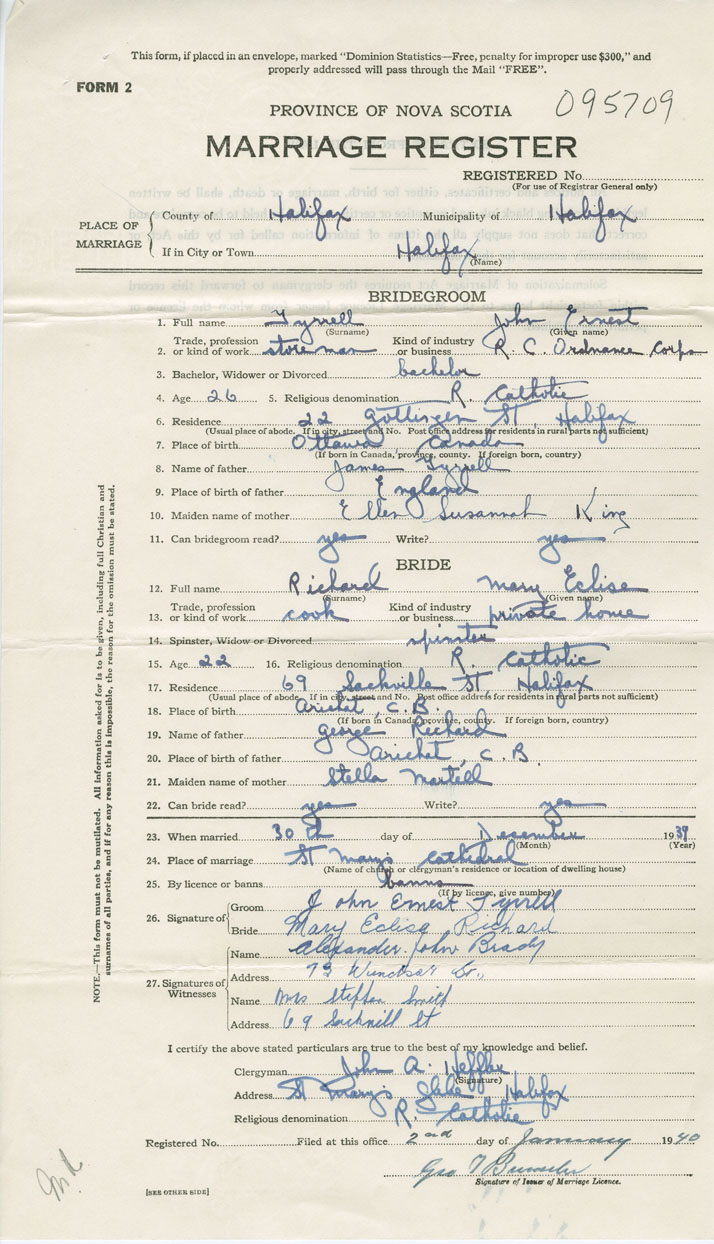 This form, if placed in an envelope, marked "Dominion Statistics—Free, penalty for improper use $300," and
properly addressed will pass through the Mail "FREE".
FORM 2
PROVINCE OF NOVA SCOTIA 095709
MARRIAGE REGISTER
REGISTERED No.
(For use of Registrar General only)
PLACE OF MARRIAGE
County of Halifax Municipality of Halifax
If in City or Town Halifax
(Name)
BRIDEGROOM
1. Full name Tyrrell John Ernest
(Surname) (Given name)
2. Trade, profession or kind of work storeman Kind of industry or business R. C. Ordnance Corps
3. Bachelor, Widower or Divorced bachelor
4. Age 26 5. Religious denomination R. Catholic
6. Residence 22 Gottingen St, Halifax
(Usual place of abode. If in city, street and No. Post office address for residents in rural parts not sufficient)
7. Place of birth Ottawa, Canada
(If born in Canada, province, county. If foreign born, country)
8. Name of father James Tyrrell
9. Place of birth of father England
10. Maiden name of mother Ellen Susannah King
11. Can bridegroom read? yes Write? yes
BRIDE
12. Full name Richard Mary Eclise
(Surname) (Given name)
13. Trade, profession or kind of work cook Kind of industry or business private home
14. Spinster, Widow or Divorced spinster
15. Age 22 16. Religious denomination R. Catholic
17. Residence 69 Sackville St Halifax
(Usual place of abode. If in city, street and No. Post office address for residents in rural parts not sufficient)
18. Place of birth Arichat, C.B.
(If born in Canada, province, county. If foreign born, country)
19. Name of father George Richard
20. Place of birth of father Arichat, C.B.
21. Maiden name of mother Stella Martell
22. Can bride read? yes Write? yes
23. When married 30th day of December 1939
(Month) (Year)
24. Place of marriage St Mary's Cathedral
(Name of church or clergyman's residence or location of dwelling house)
25. By licence or banns banns
(If by licence, give number)
26. Signature of
Groom John Ernest Tyrrell
Bride Mary Eclise Richard
27. Signatures of Witnesses
Name Alexander John Brady
Address 73 St.,
Name Mrs Smith
Address 69 St
I certify the above stated particulars are true to the best of my knowledge and belief.
Clergyman John A.
(Signature)
Address St Mary's Glebe Halifax
Religious denomination R. Catholic
Registered No. Filed at this office 2nd day of January 1940
Geo
Signature of Issuer of Marriage Licence.
[SEE OTHER SIDE]
NOTE.—This form must not be mutilated. All information asked for is to be given, including full Christian and
surnames of all parties, and if for any reason this is impossible, the reason for the omission must be stated.